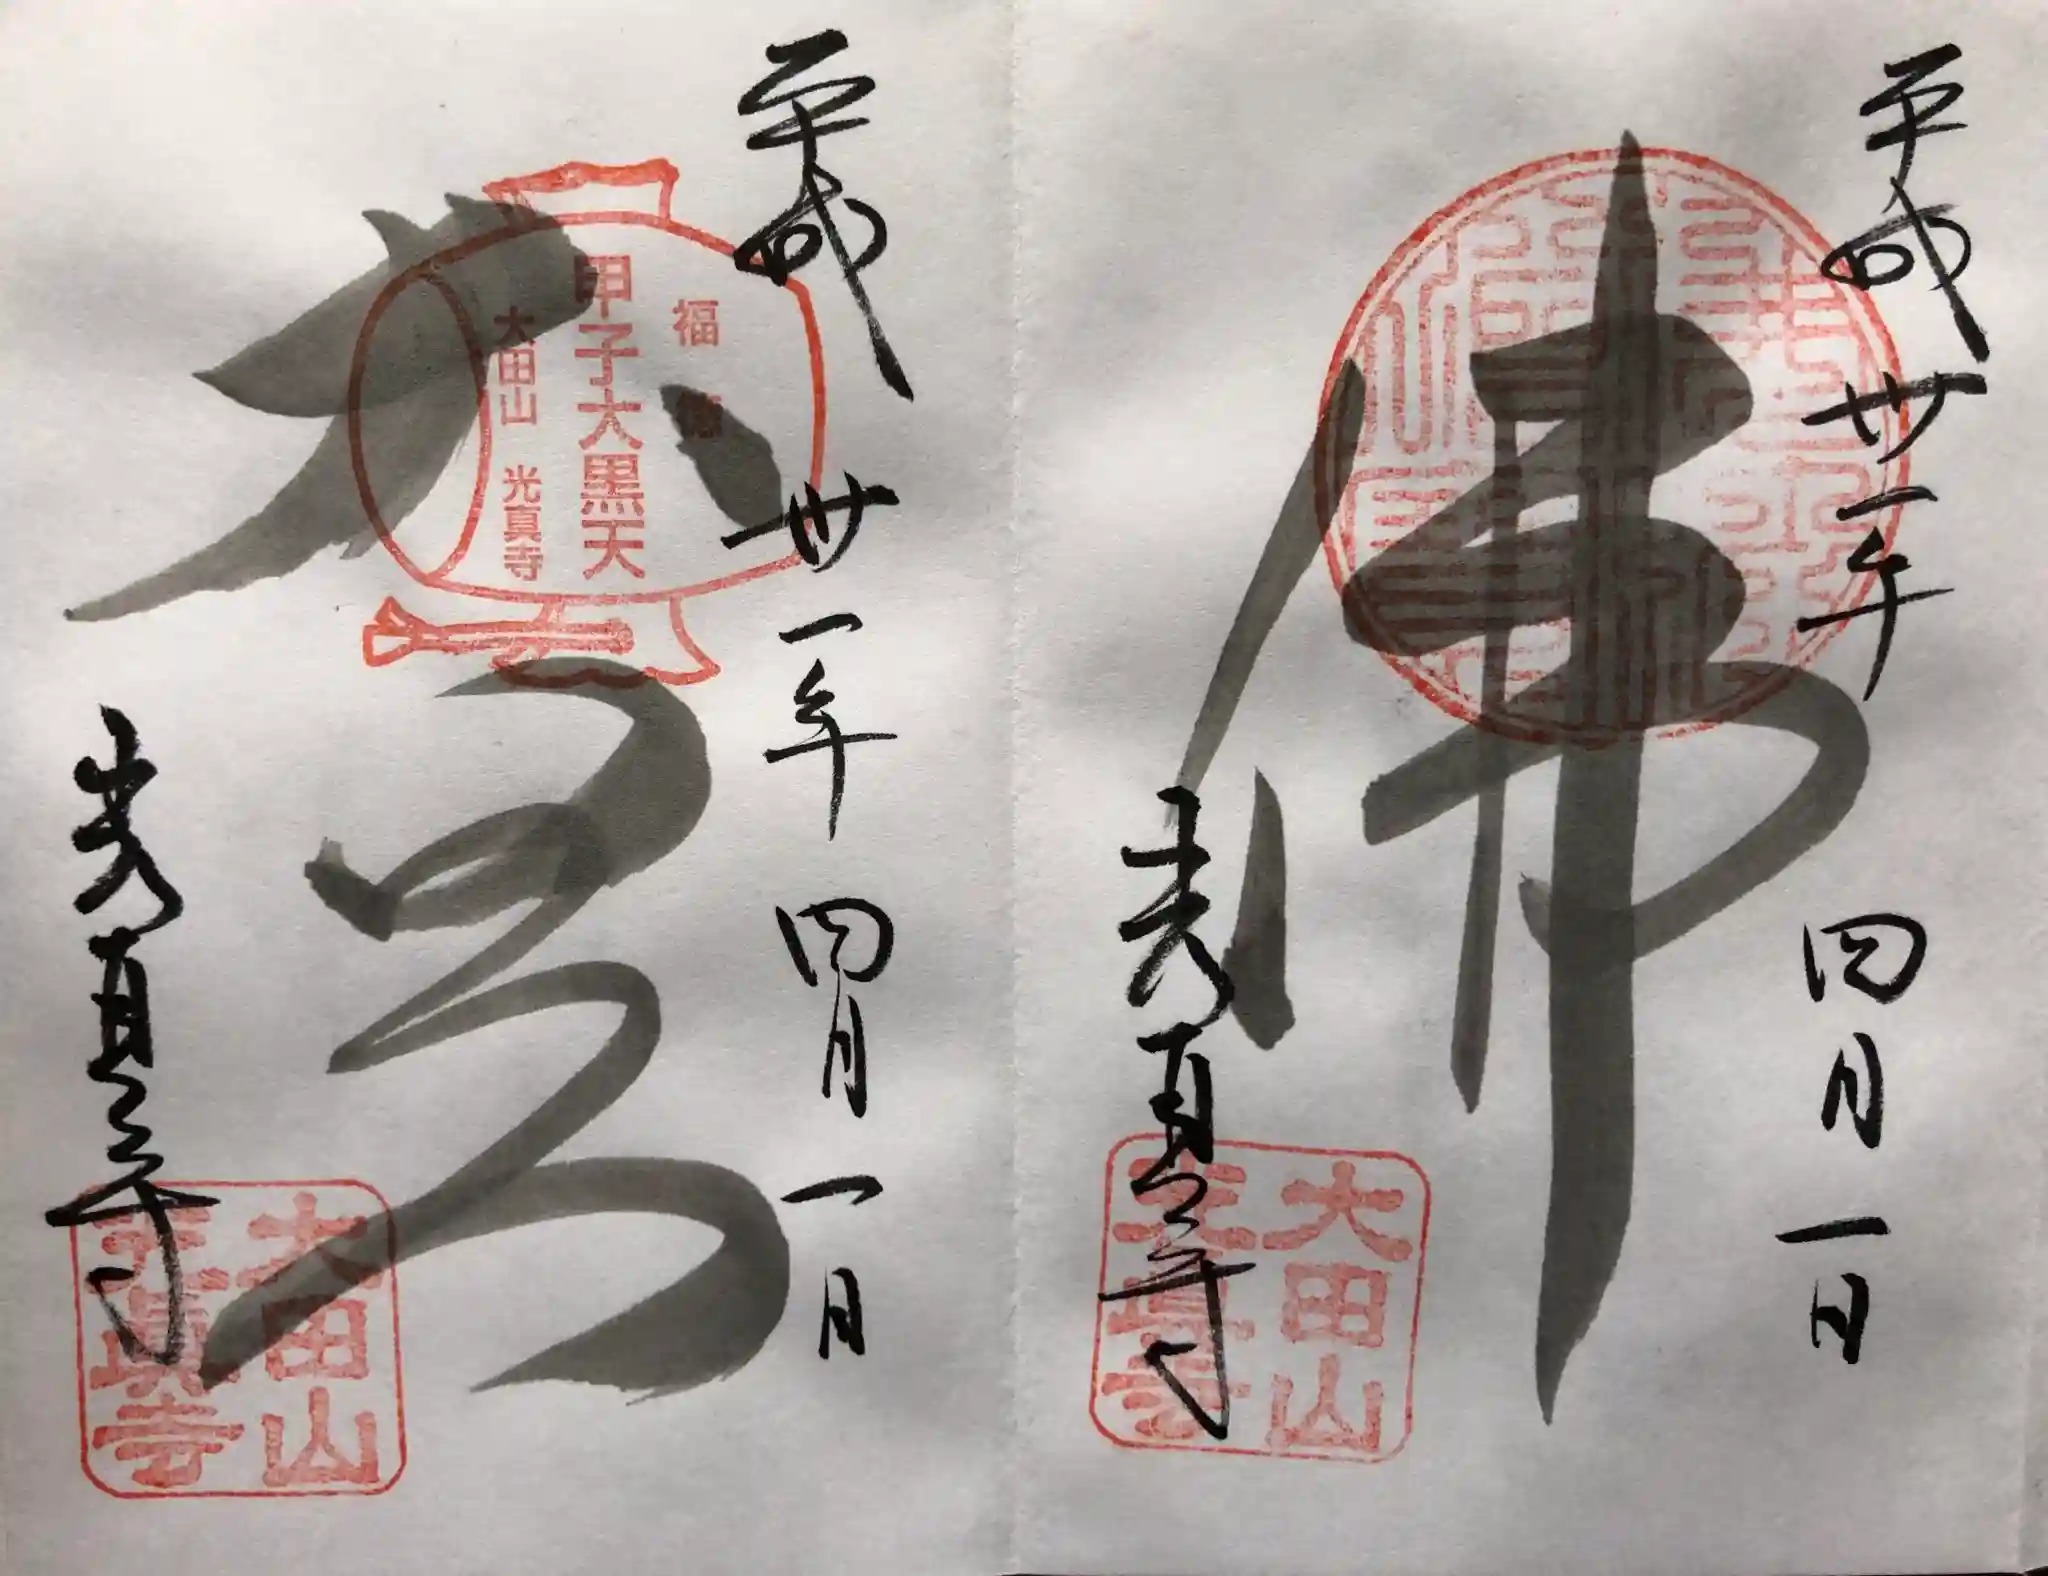 平成卅一年四月一日
佛
光真寺
大田山
光真寺
平成卅一年四月一日
福
甲子大黒天
大田山 光真寺
大黒
光真寺
大田山
光真寺